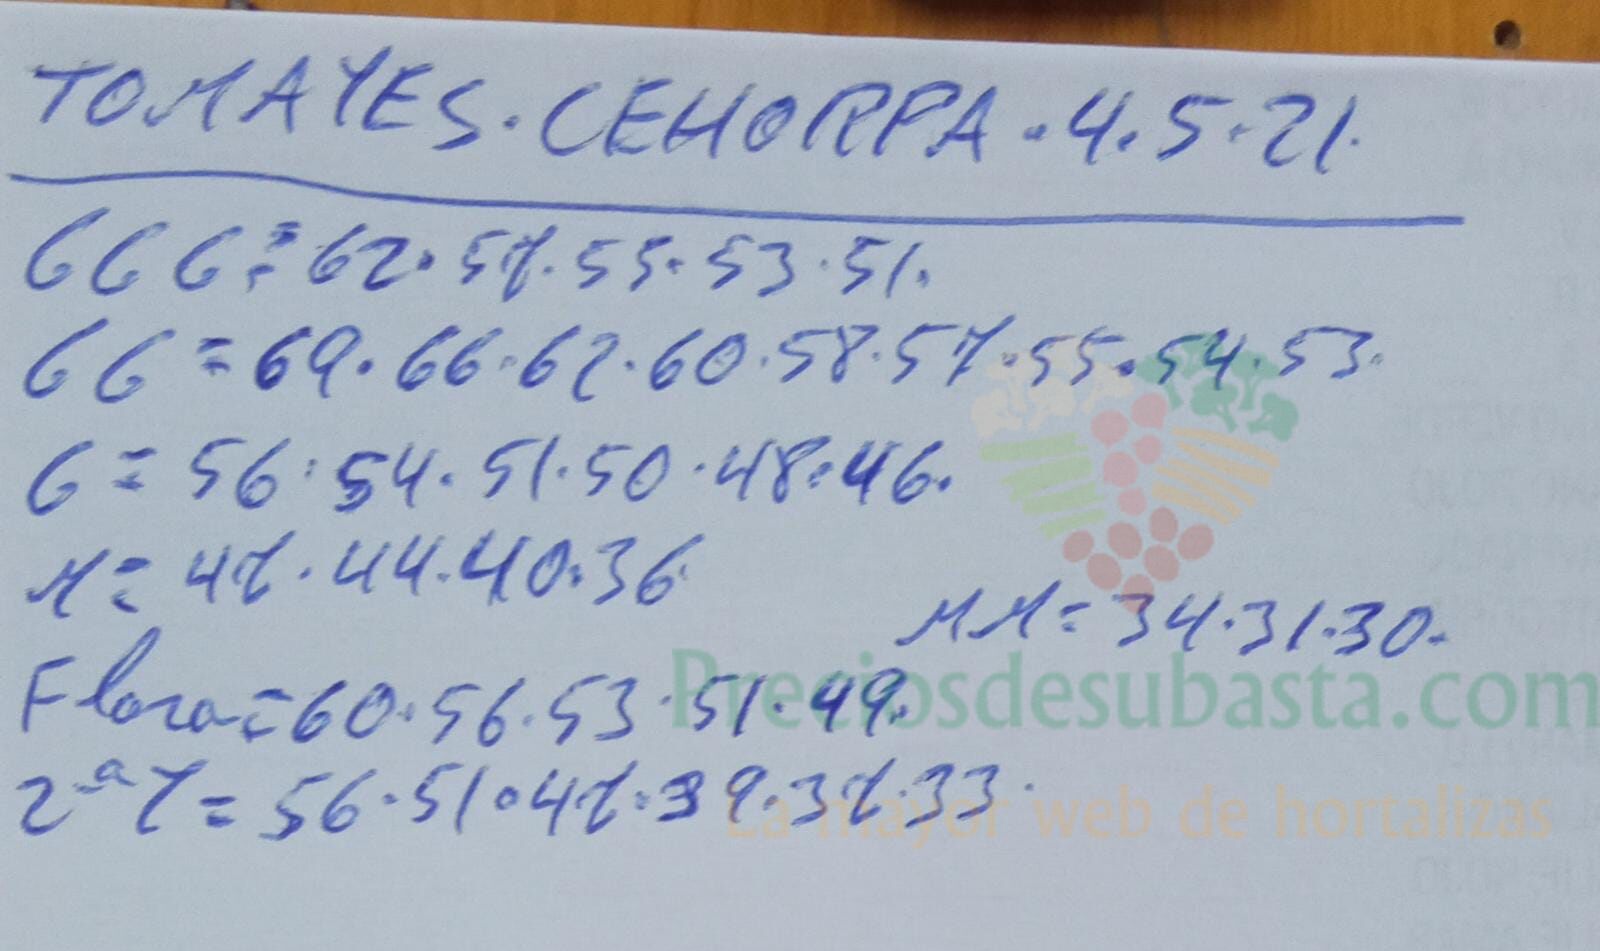 TOMATES.CEHORPA.4.5.21.
GGG=62.57.55.53.51.
GG=69.66.62.60.58.57.55.54.53.
G=56.54.51.50.48.46.
M=47.44.40.36
MM=34.31.30.
Flora=60.56.53.51.49.
2ªT=56.51.47.39.37.33.
Preciosdesubasta.com
La mayor web de hortalizas